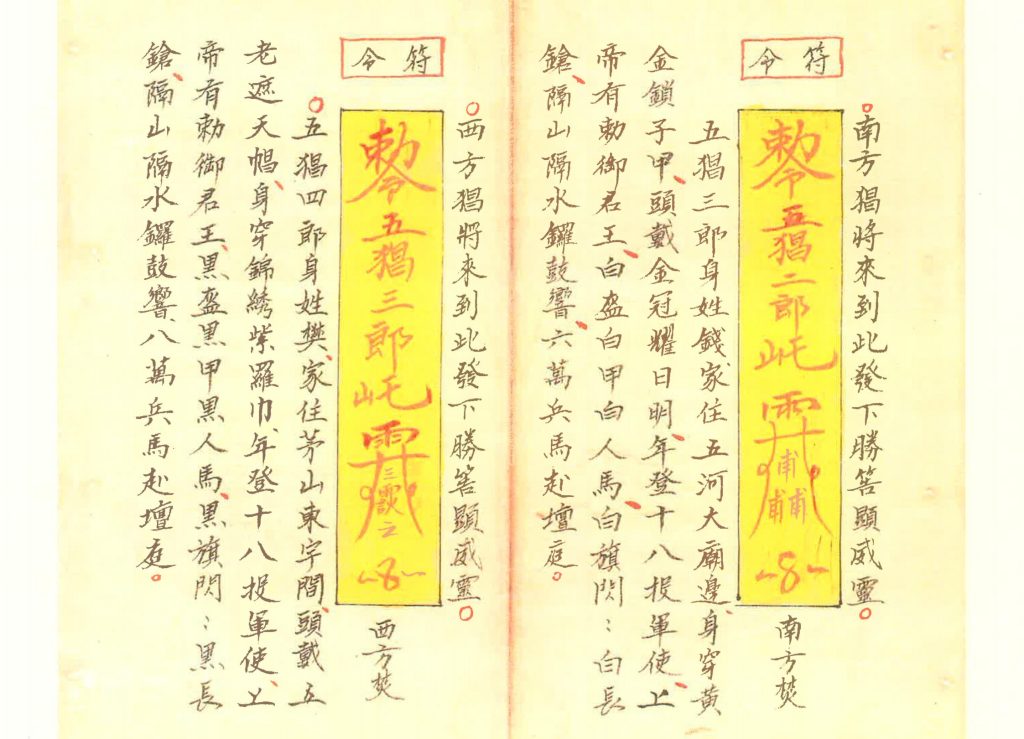 南方猖將來到此發下勝筶顯威靈
符令
勅令五猖二郎
南方焚
五猖三郎身姓錢家住五河大廟邊身穿黃
金鎖子甲頭戴金冠耀日明年登十八投軍使上
帝有勅御君王白盔白甲白人馬白旗閃:白長
鎗隔山隔水鑼鼓響六萬兵馬赴壇庭
西方猖將來到此發下勝筶顯威靈
符令
勅令五猖三郎
西方焚
五猖四郎身姓樊家住茅山東字間頭戴五
老遮天帽身穿錦綉紫羅巾年登十八投軍使上
帝有勅御君王黑盔黑甲黑人馬黑旗閃:黑長
鎗隔山隔水鑼鼓響八萬兵馬赴壇庭